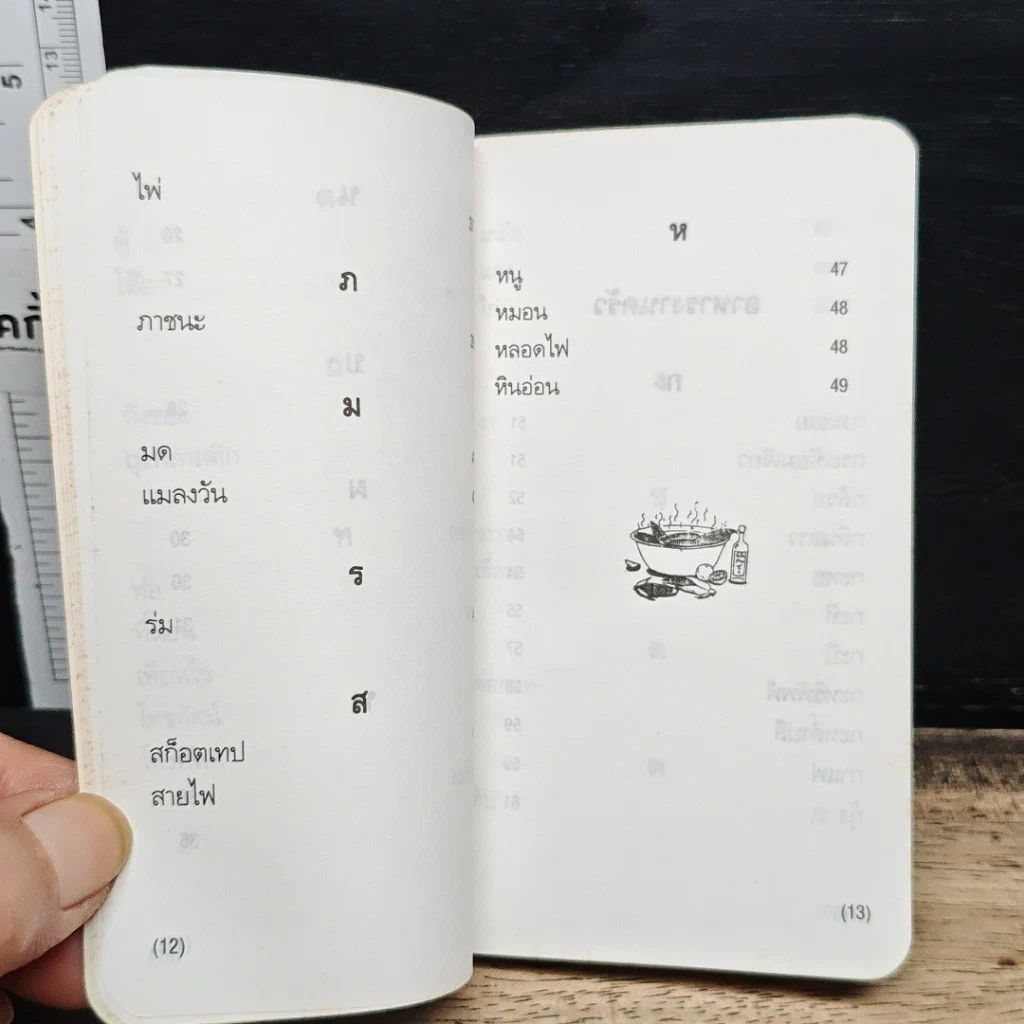 ไพ่
ภ
ภาชนะ
ม
มด
แมลงวัน
ร
ร่ม
ส
สก็อตเทป
สายไฟ
(12)
ห
หนู 47
หมอน 48
หลอดไฟ 48
หินอ่อน 49
(13)
5
13